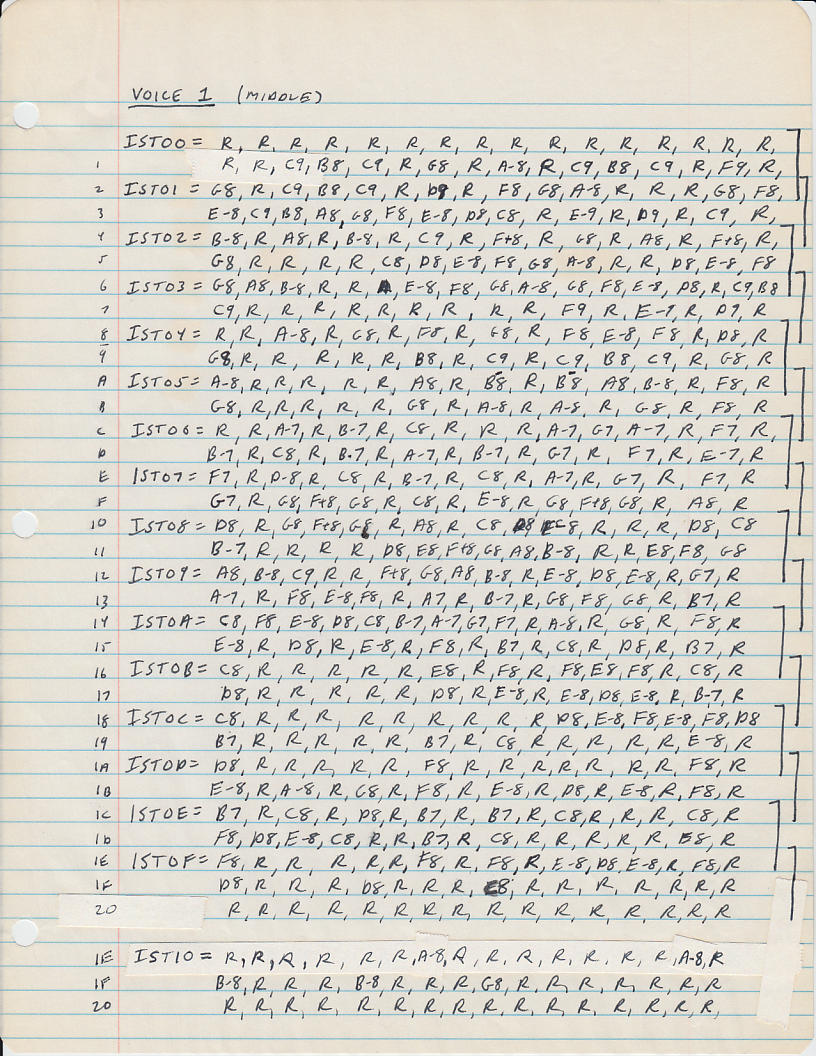 VOICE 1 (MIDDLE)
IST00 = R, R, R, R, R, R, R, R, R, R, R, R, R, R, R, R,
1 R, R, C9, B8, C9, R, G8, R, A-8, R, C9, B8, C9, R, F9, R,
2 IST01 = G8, R, C9, B8, C9, R, D9, R, F8, G8, A-8, R, R, R, G8, F8,
3 E-8, C9, B8, A8, G8, F8, E-8, D8, C8, R, E-9, R, D9, R, C9, R,
4 IST02 = B-8, R, A8, R, B-8, R, C9, R, F+8, R, G8, R, A8, R, F+8, R,
5 G8, R, R, R, R, C8, D8, E-8, F8, G8, A-8, R, R, D8, E-8, F8
6 IST03 = G8, A8, B-8, R, R, E-8, F8, G8, A-8, G8, F8, E-8, D8, R, C9, B8
7 C9, R, R, R, R, R, R, R, R, R, F9, R, E-9, R, D9, R
8 IST04 = R, R, A-8, R, G8, R, F8, R, G8, R, F8, E-8, F8, R, D8, R
9 G8, R, R, R, R, R, B8, R, C9, R, C9, B8, C9, R, G8, R
A IST05 = A-8, R, R, R, R, R, A8, R, B-8, R, B-8, A8, B-8, R, F8, R
B G8, R, R, R, R, R, G8, R, A-8, R, A-8, R, G8, R, F8, R
C IST06 = R, R, A-7, R, B-7, R, C8, R, R, R, A-7, G7, A-7, R, F7, R,
D B-7, R, C8, R, B-7, R, A-7, R, B-7, R, G7, R, F7, R, E-7, R
E IST07 = F7, R, D-8, R, C8, R, B-7, R, C8, R, A-7, R, G7, R, F7, R
F G7, R, G8, F+8, G8, R, C8, R, E-8, R, G8, F+8, G8, R, A8, R
10 IST08 = D8, R, G8, F+8, G8, R, A8, R, C8, D8, C8, R, R, R, D8, C8
11 B-7, R, R, R, R, D8, E8, F+8, G8, A8, B-8, R, R, E8, F8, G8
12 IST09 = A8, B-8, C9, R, R, F+8, G8, A8, B-8, R, E-8, D8, E-8, R, G7, R
13 A-7, R, F8, E-8, F8, R, A7, R, B-7, R, G8, F8, G8, R, B7, R
14 IST0A = C8, F8, E-8, D8, C8, B-7, A-7, G7, F7, R, A-8, R, G8, R, F8, R
15 E-8, R, D8, R, E-8, R, F8, R, B7, R, C8, R, D8, R, B7, R
16 IST0B = C8, R, R, R, R, R, E8, R, F8, R, F8, E8, F8, R, C8, R
17 D8, R, R, R, R, R, D8, R, E-8, R, E-8, D8, E-8, R, B-7, R
18 IST0C = C8, R, R, R, R, R, R, R, R, R, D8, E-8, F8, E-8, F8, D8
19 B7, R, R, R, R, R, B7, R, C8, R, R, R, R, R, E-8, R
1A IST0D = D8, R, R, R, R, R, F8, R, R, R, R, R, R, R, F8, R
1B E-8, R, A-8, R, G8, R, F8, R, E-8, R, D8, R, E-8, R, F8, R
1C IST0E = B7, R, C8, R, D8, R, B7, R, B7, R, C8, R, R, R, C8, R
1D F8, D8, E-8, C8, R, R, B7, R, C8, R, R, R, R, R, B8, R
1E IST0F = F8, R, R, R, R, R, F8, R, F8, R, E-8, D8, E-8, R, F8, R
1F D8, R, R, R, D8, R, R, R, C8, R, R, R, R, R, R, R
20 R, R, R, R, R, R, R, R, R, R, R, R, R, R, R, R
1E IST10 = R, R, R, R, R, R, A-8, R, R, R, R, R, R, R, A-8, R
1F B-8, R, R, R, B-8, R, R, R, G8, R, R, R, R, R, R, R
20 R, R, R, R, R, R, R, R, R, R, R, R, R, R, R, R,